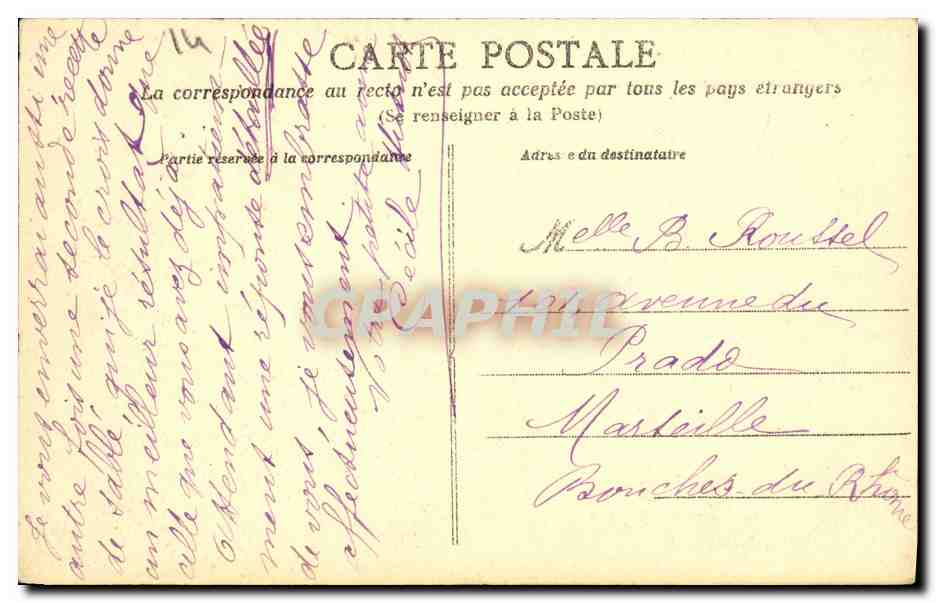 14
CARTE POSTALE
La correspondance au recto n'est pas acceptée par tous les pays étrangers
(Se renseigner à la Poste)
Partie réservée à la correspondance
Adresse du destinataire
Je vous enverrai aussi une
autre fois une seconde recette
de sablé, qui je le crois donne
un meilleur résultat que
celle que vous avez déjà.
Attendant impatiem-
ment une réponse détaillée
de vous, je vous embrasse
affectueusement
Votre petite amie
Cécile
Melle B. Roussel
avenue du
Prado
Marseille
Bouches-du-Rhône
CPAPHIL